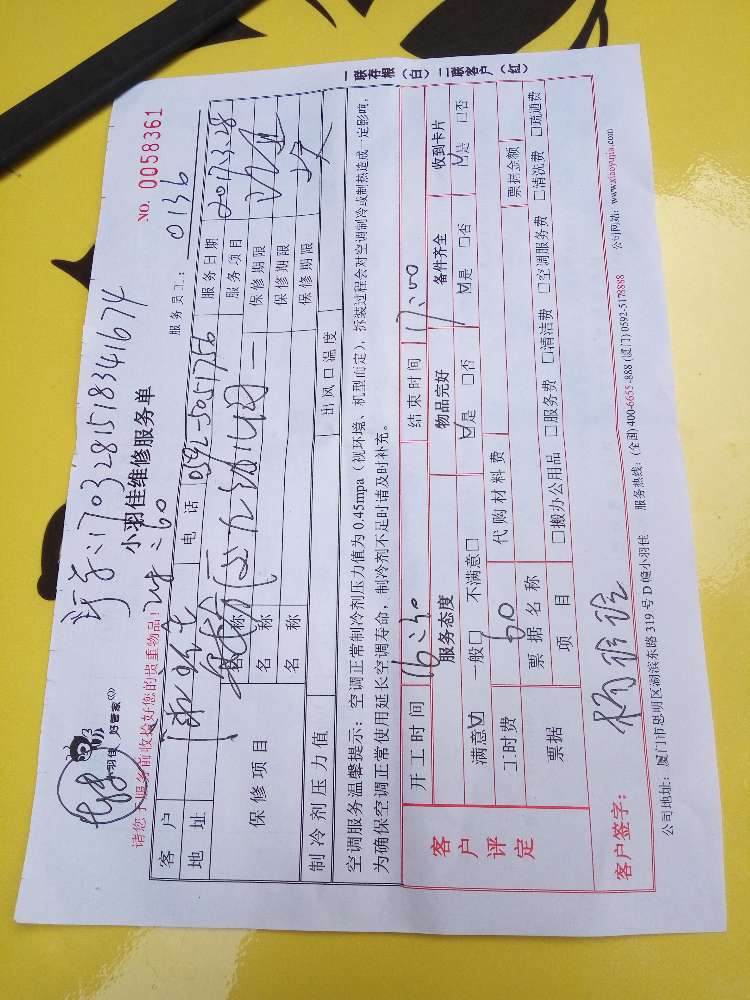 1703281518341674
NO. 0058361
小羽佳 好管家
小羽佳维修服务单
服务员工: 0136
请您于服务前收检好您的贵重物品!
60
客户
电话 0592-5051756
服务日期 2017.3.28
地址
服务项目
保修项目
名称
保修期限
名称
保修期限
名称
保修期限
制冷剂压力值
出风口温度
空调服务温馨提示: 空调正常制冷剂压力值为 0.45mpa (视环境、机型而定), 拆装过程会对空调制冷或制热造成一定影响,
为确保空调正常使用延长空调寿命, 制冷剂不足时请及时补充。
一联存根 (白) 二联客户 (红)
客户评定
开工时间 16:30
结束时间 17:00
服务态度
物品完好
备件齐全
收到卡片
满意☑ 一般□ 不满意□
☑是 □否
☑是 □否
☑是 □否
工时费 60
代购材料费
票据
票据名称
票据金额
项目
□搬办公用品 □服务费 □清洁费 □空调服务费 □清洗费 □疏通费
客户签字:
公司地址: 厦门市思明区湖滨东路 319 号 D 幢小羽佳 服务热线: (全国) 400-6655-888 (厦门) 0592-5178888 公司网站: www.xiaoyujia.com